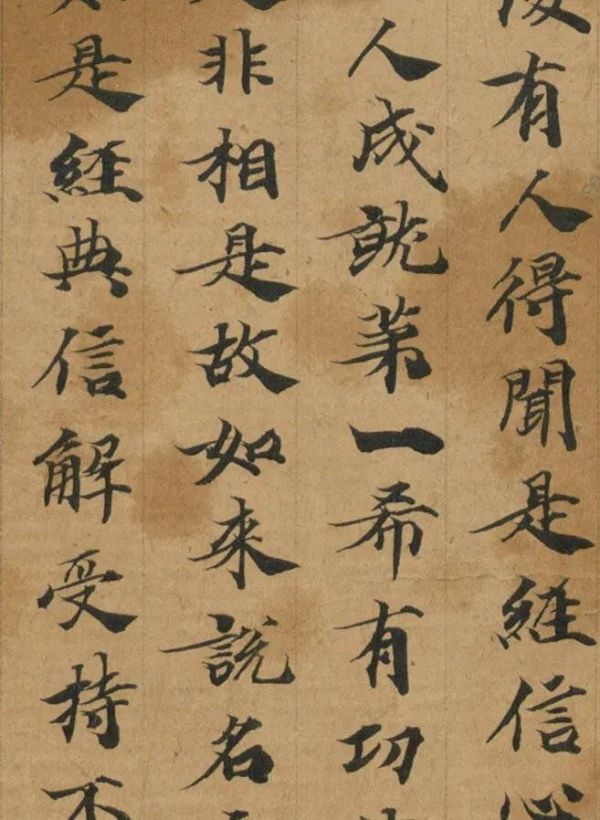 復有人得聞是經信心
人成就苐一希有功
非相是故如來說名
是經典信解受持不